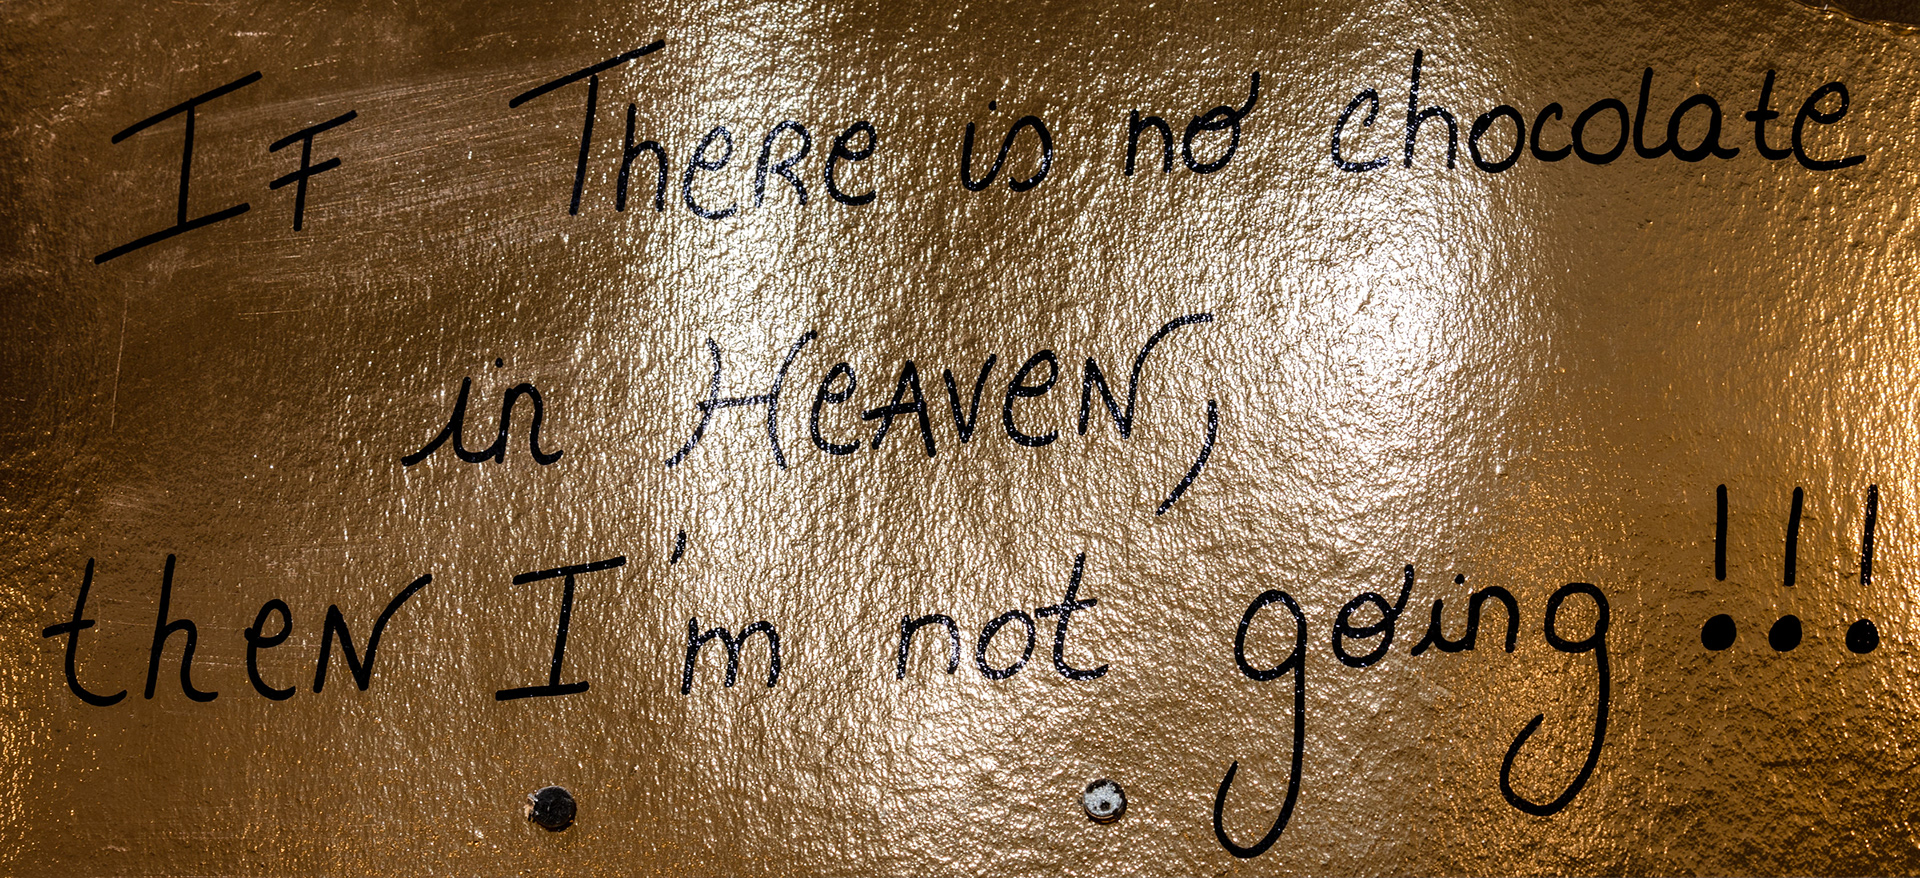 IF There is no chocolate
in HeAVeN,
theN I'm not going!!!